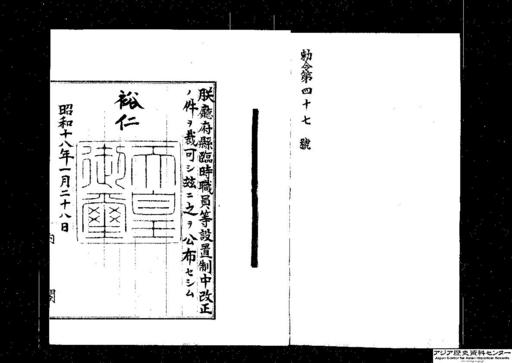 勅令第四十七號
朕廳府縣臨時職員等設置制中改正
ノ件ヲ裁可シ茲ニ之ヲ公布セシム
裕仁
天皇
御璽
昭和十八年一月二十八日
内閣
アジア歴史資料センター
Japan Center for Asian Historical Records